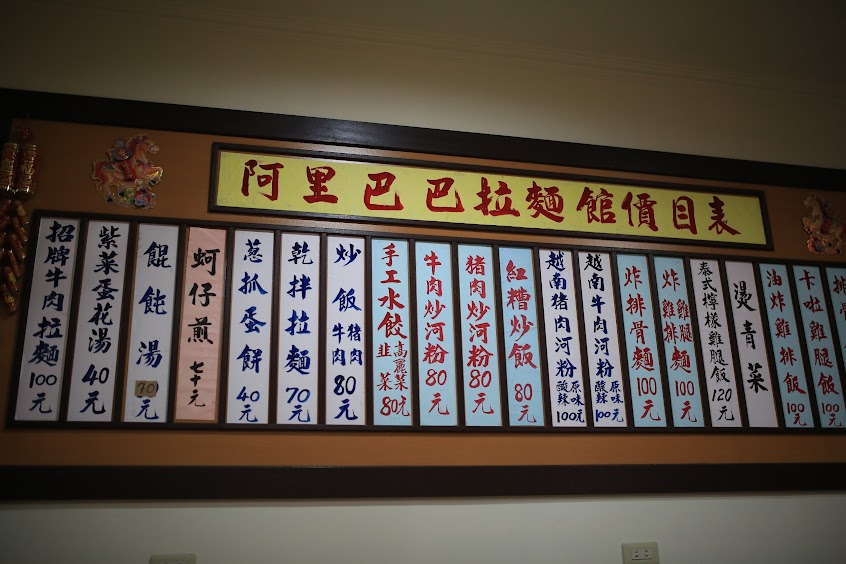 阿里巴巴拉麵館價目表
招牌牛肉拉麵100元
紫菜蛋花湯40元
餛飩湯70元
蚵仔煎七十元
蔥抓蛋餅40元
乾拌拉麵70元
炒飯豬肉牛肉80元
手工水餃高麗菜韭菜80元
牛肉炒河粉80元
豬肉炒河粉80元
紅糟炒飯80元
越南豬肉河粉原味酸辣100元
越南牛肉河粉原味酸辣100元
炸排骨麵100元
炸雞腿麵100元
泰式檸檬雞腿飯120元
燙青菜
油炸雞排飯100元
卡啦雞腿飯100元